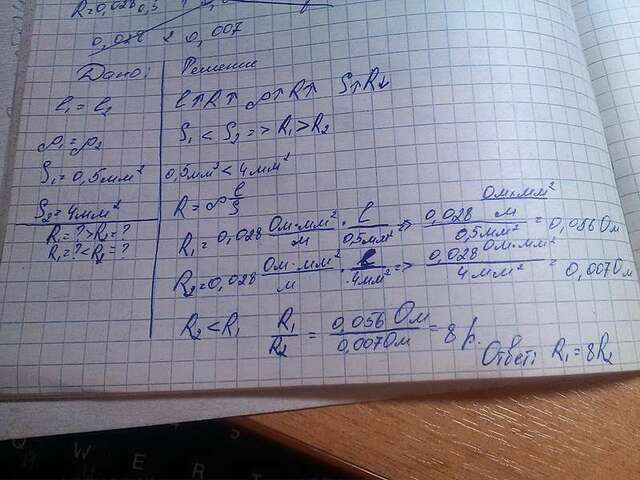 R=0,028
0,5
0,028 2 0,007
Дано:
l₁ = l₂
ρ₁ = ρ₂
S₁ = 0,5мм²
S₂ = 4мм²
R₁ = ? > R₂ = ?
R₁ = ? < R₂ = ?
Решение
l↑R↑ ρ↑R↑ S↑R↓
S₁ < S₂ => R₁ > R₂
0,5мм² < 4мм²
R = ρ l/S
R₁ = 0,028 Ом·мм²/м · l/0,5мм² => 0,028 Ом·мм²/м / 0,5мм² = 0,056 Ом
R₂ = 0,028 Ом·мм²/м · l/4мм² => 0,028 Ом·мм²/м / 4мм² = 0,007 Ом
R₂ < R₁ R₁/R₂ = 0,056 Ом/0,007 Ом = 8 р.
Ответ: R₁ = 8R₂
W E R